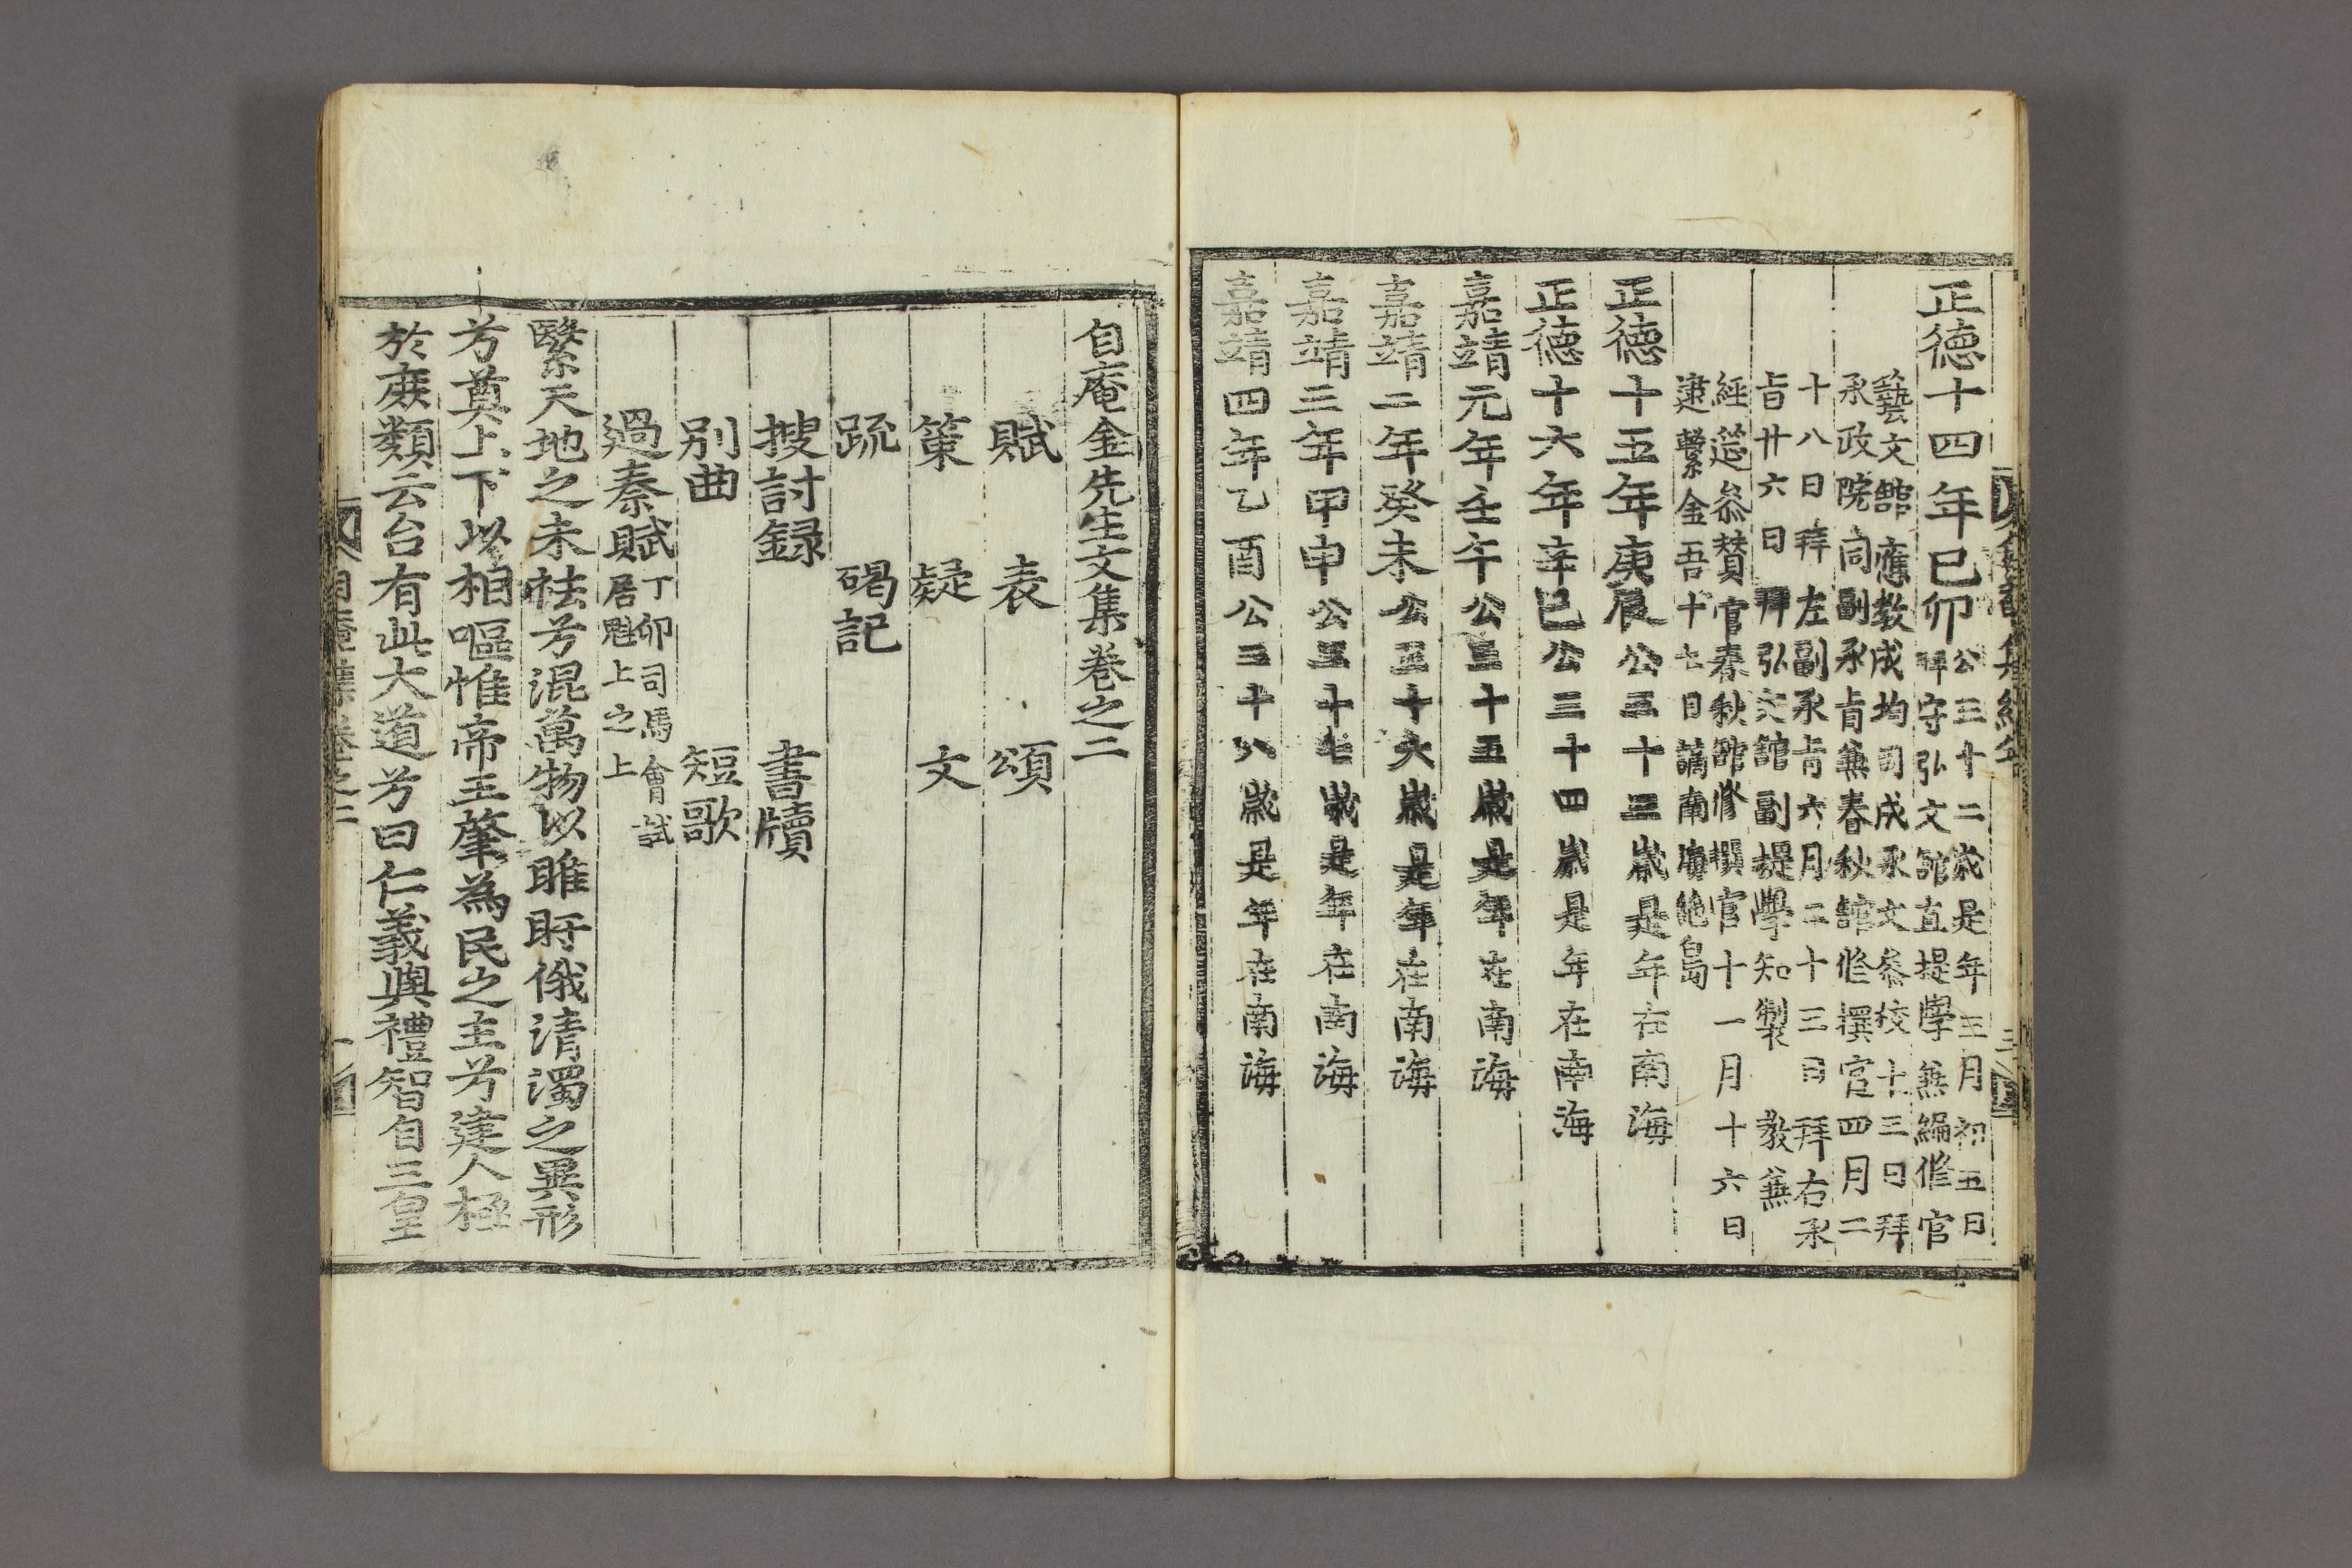 正德十四年己卯公三十二歲是年正月初五日
拜守弘文館直提學兼編修官
藝文館應敎成均司成承文參校十三日拜
承政院同副承旨兼春秋館修撰官四月二
十八日拜左副承旨六月二十三日拜右承
旨廿六日拜弘文館副提學知製敎兼
經筵參贊官春秋館修撰官十一月十六日
逮繫金吾十七日謫南海絶島
正德十五年庚辰公三十三歲是年在南海
正德十六年辛巳公三十四歲是年在南海
嘉靖元年壬午公三十五歲是年在南海
嘉靖二年癸未公三十六歲是年在南海
嘉靖三年甲申公三十七歲是年在南海
嘉靖四年乙酉公三十八歲是年在南海
自庵金先生文集卷之二
賦 表 頌
策 疑 文
疏 碣記
搜討錄 書牘
別曲 短歌
過秦賦丁卯司馬會試
居魁上之上
繄天地之未袪兮混萬物以睢盱俄淸濁之異形
兮奠上下以相嘔惟帝王肇為民之主兮建人極
於庶類云台有此大道兮曰仁義與禮智自三皇
自庵集卷之二